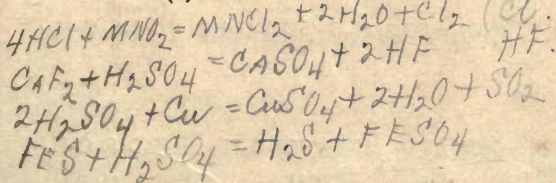 4HCl + MNO₂ = MNCl₂ + 2H₂O + Cl₂ (Cl.
CAF₂ + H₂SO₄ = CASO₄ + 2HF HF.
2H₂SO₄ + Cu = CuSO₄ + 2H₂O + SO₂
FES + H₂SO₄ = H₂S + FESO₄